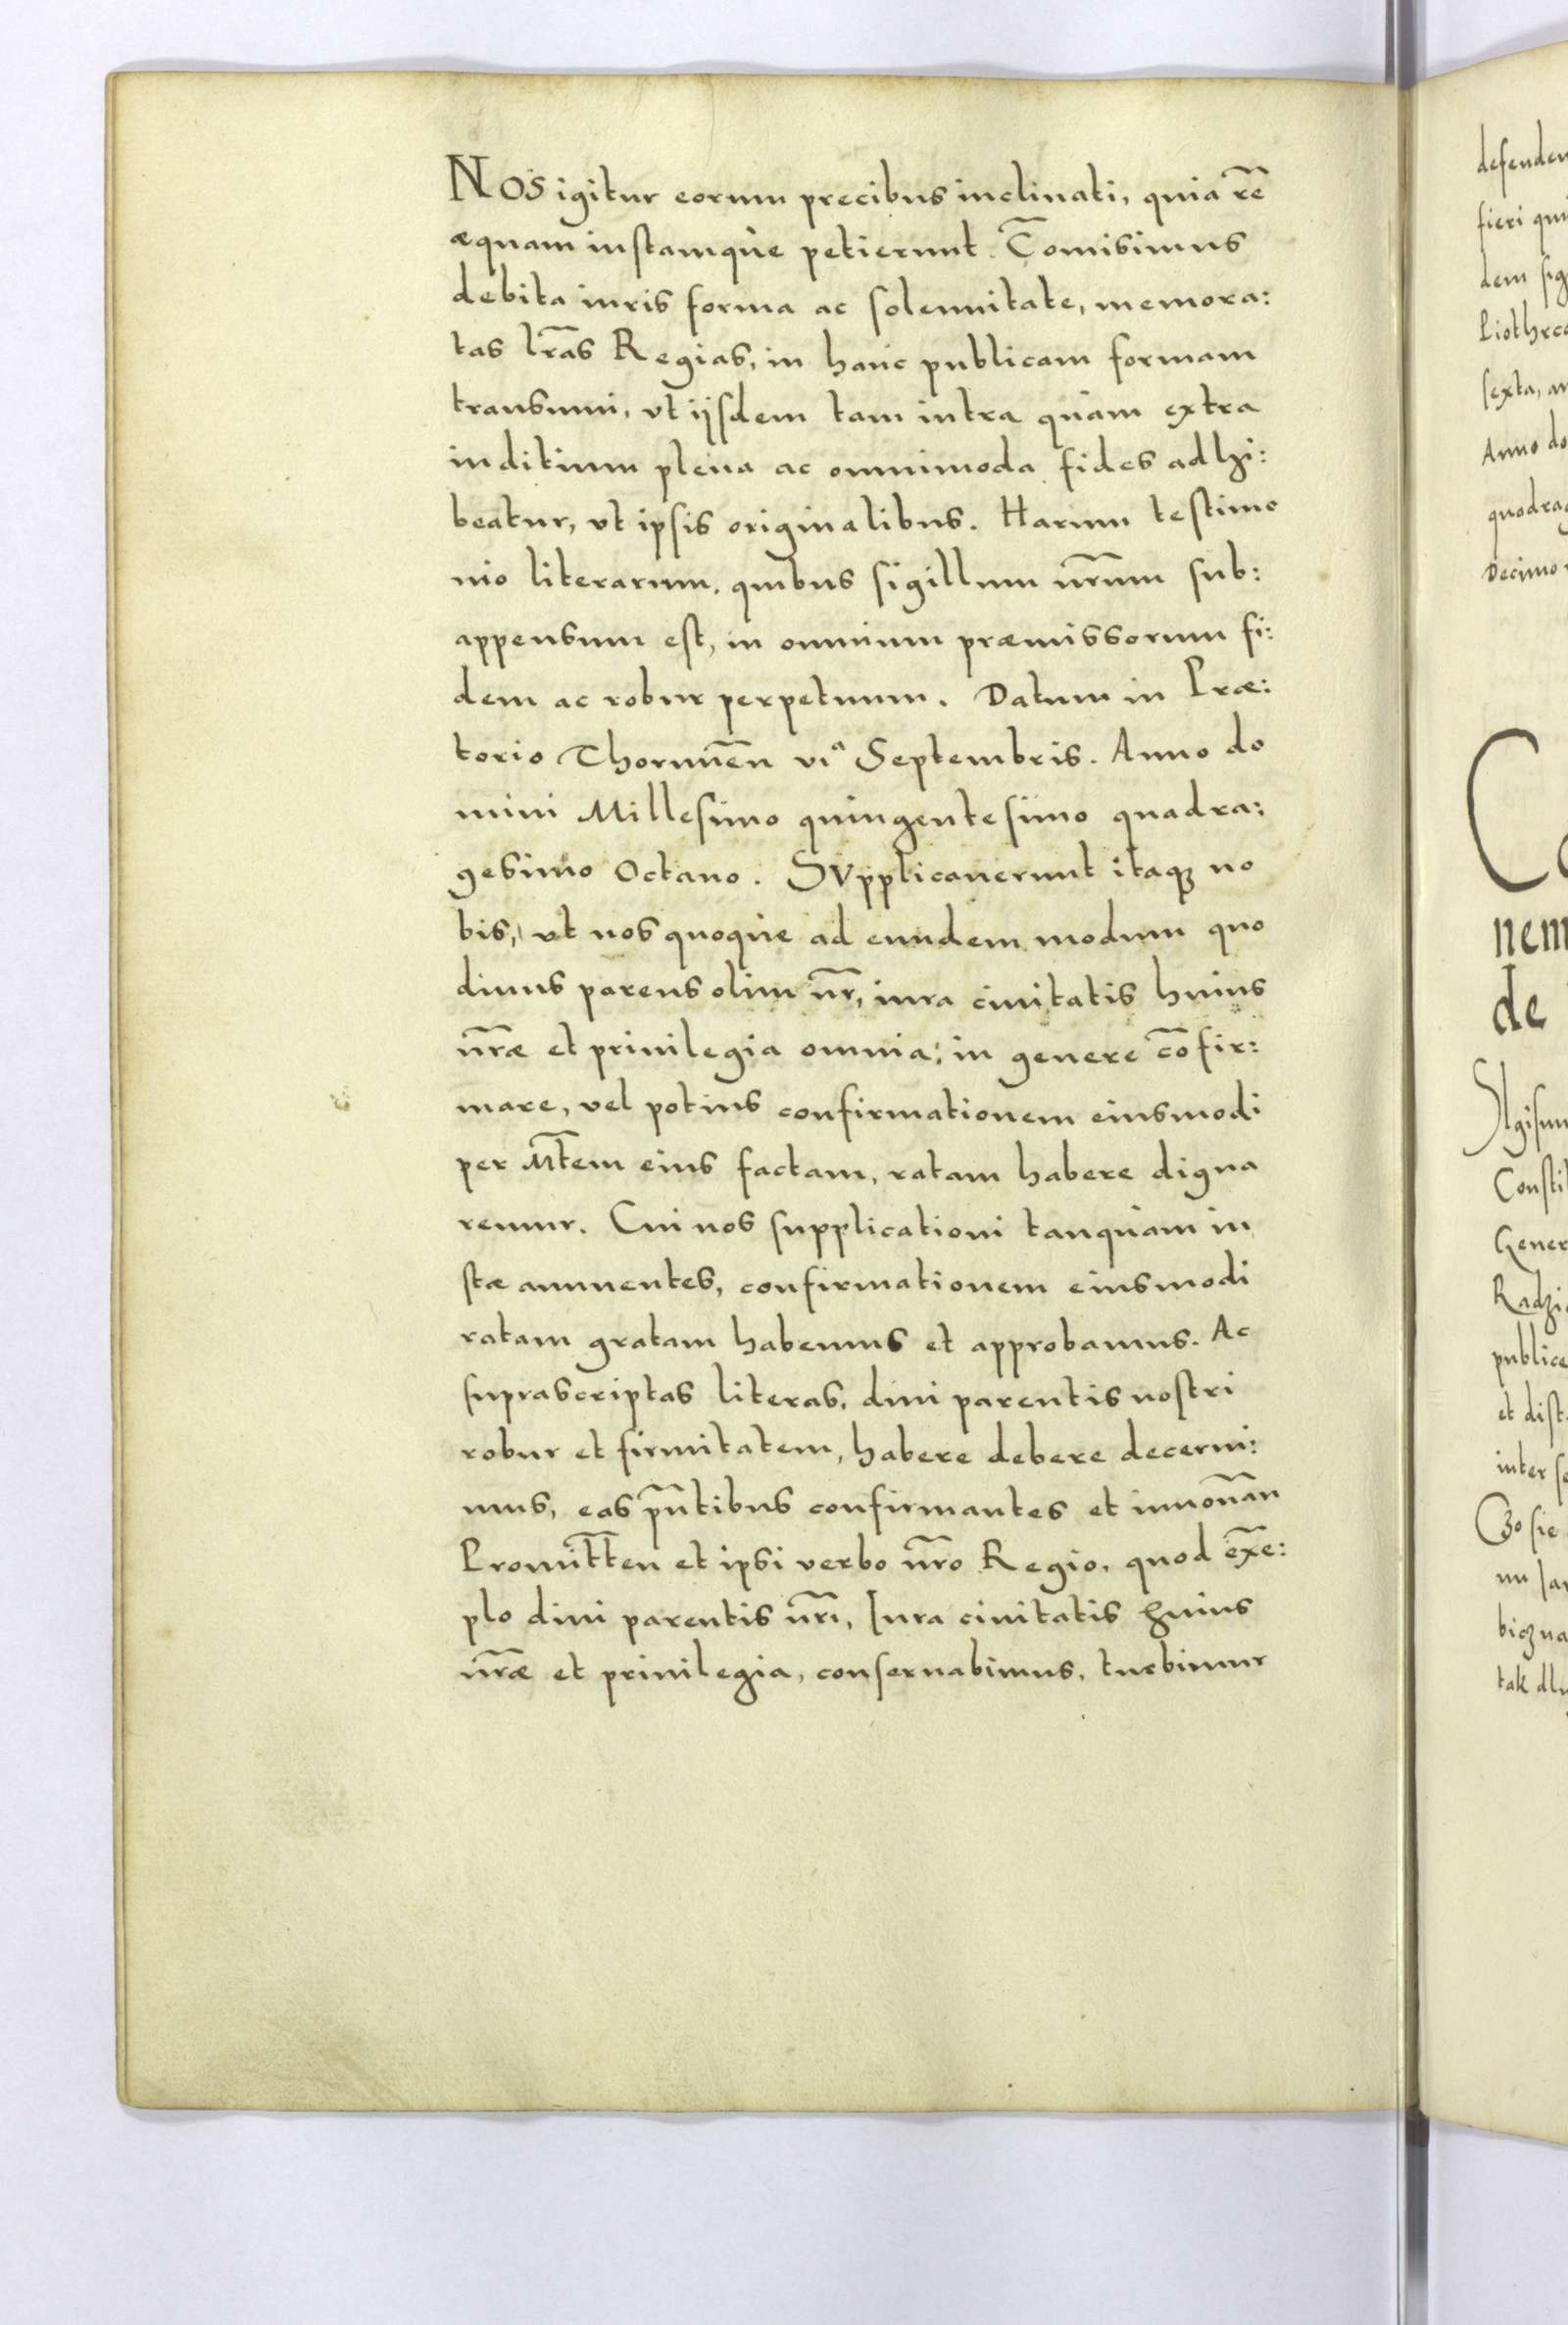 NOS igitur eorum precibus inclinati, quia rē
æquam iustamque petierunt. Cōmisimus
debita iuris forma ac solennitate, memora:
tas l̃ras Regias, in hanc publicam formam
transumi, vt ijsdem tam intra quàm extra
iuditium plena ac omnimoda fides adhi:
beatur, vt ipsis originalibus. Harum testimo
nio literarum, quibus sigillum nr̃um sub:
appensum est, in omnium præmissorum fi:
dem ac robur perpetuum. Datum in Præ:
torio Thorunēn viª Septembris. Anno do
mini Millesimo quingentesimo quadra:
gesimo Octauo. SVpplicauerunt itaqꝫ no
bis, vt nos quoque ad eundem modum quo
diuus parens olim nr̃, iura ciuitatis huius
nr̃æ et priuilegia omnia: in genere cōfir:
mare, vel potius confirmationem eiusmodi
per Mt̃em eius factam, ratam habere digna
remur. Cui nos supplicationi tanquam iu
stæ annuentes, confirmationem eiusmodi
ratam gratam habemus et approbamus. Ac
suprascriptas literas, diui parentis nostri
robur et firmitatem, habere debere decerni:
mus, eas pn̄tibus confirmantes et innouān
Promit̃ten et ipsi verbo nr̃o Regio, quod exē:
plo diui parentis nr̃i, Iura ciuitatis huius
nr̃æ et priuilegia, conseruabimus, tuebimur
defenden
fieri qui
dem sig
Piothrco
sexta, an
Anno do
quodrag
Decimo
Co
nem
de
SIgisun
Consti
Gener
Radzi
publice
et dist
inter se
Czo sie
nu Jar
bicz na
tak dlu